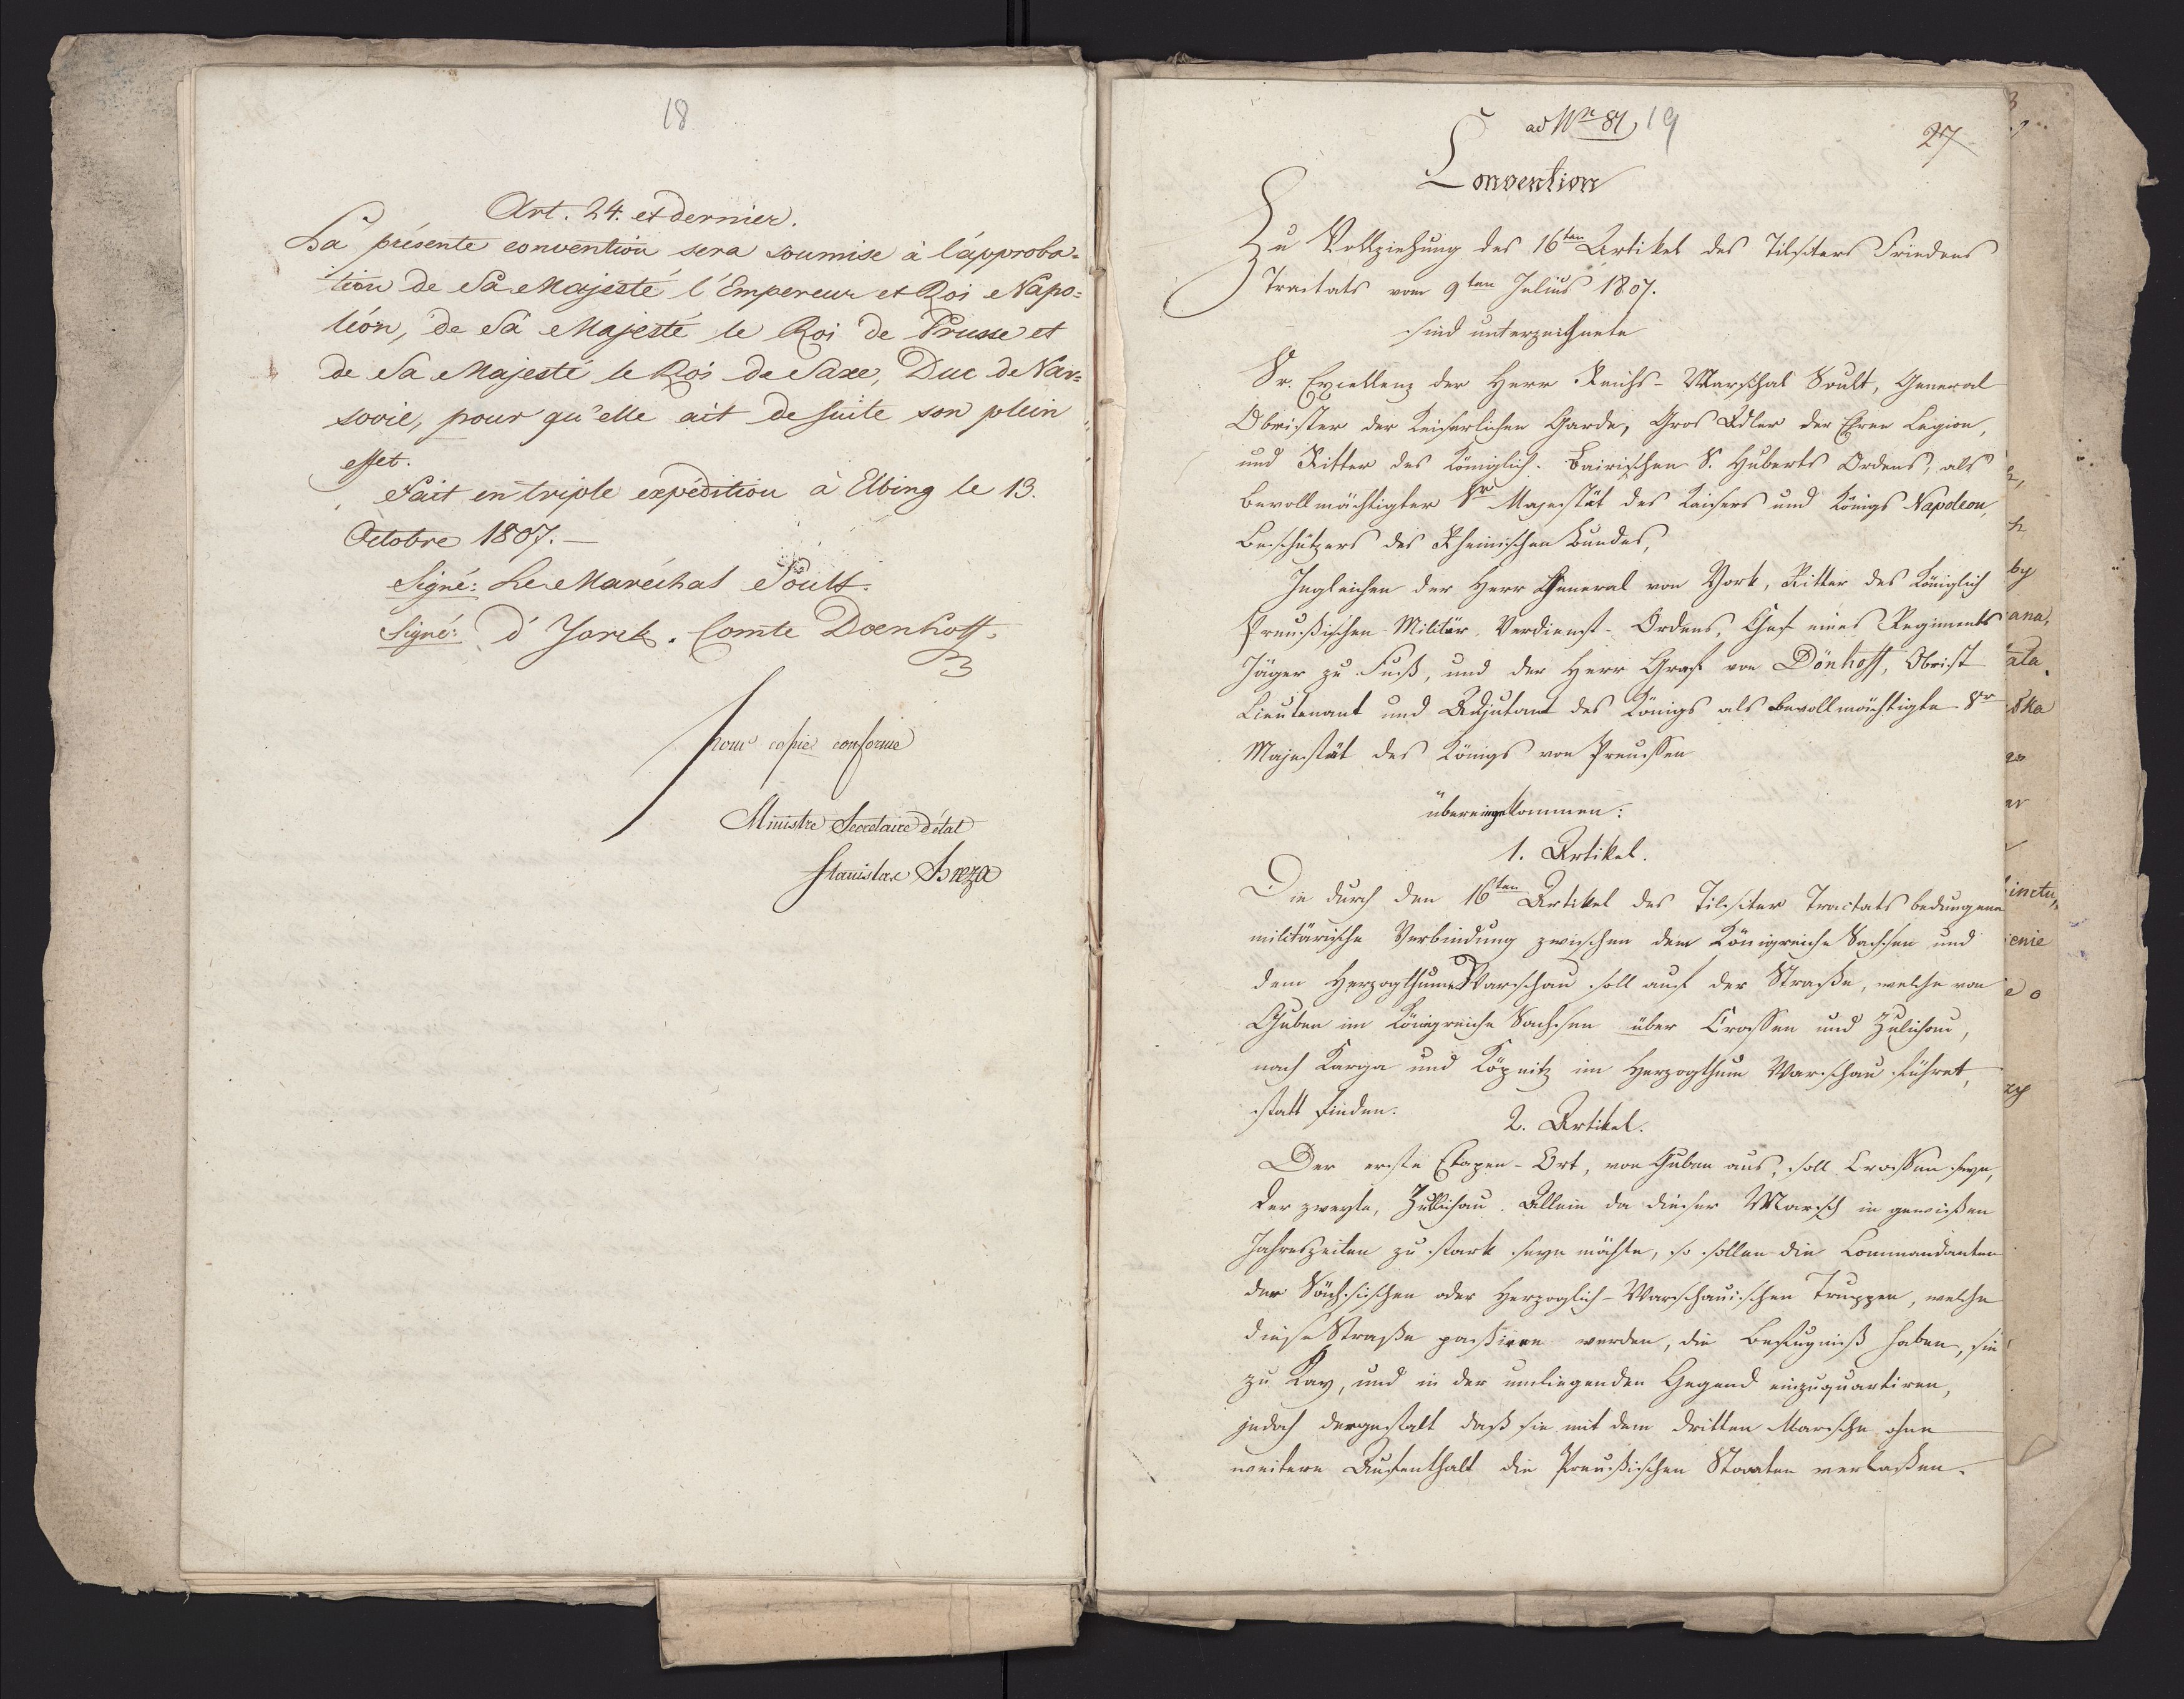 18
Art. 24. et dernier.
La présente convention sera soumise à l'approba=
tion de Sa Majesté l'Empereur et Roi Napo=
léon, de Sa Majesté le Roi de Prusse et
de Sa Majesté le Roi de Saxe, Duc de Var=
sovie, pour qu'elle ait de suite son plein
effet.
Fait en triple expédition à Elbing le 13.
Octobre 1807.—
Signé: Le Maréchal Soult.
Signé: d'Yorck. Comte Doenhoff.
pour copie conforme
Ministre Secretaire d'état
Stanislas Breza
ad Nre 81, 19
27
Convention
Zu Vollziehung des 16ten Artikel des Tilsiters Friedens
Tractats vom 9ten Julius 1807.
sind unterzeichnete
Sr. Excellenz der Herr Reichs-Marschal Soult, General
Obrister der Keiserlichen Garde, Gros Adler der Ehren Legion,
und Ritter des Königlich-Bairischen S. Huberts Ordens, als
Bevollmächtigter Sr Majestät des Kaisers und Königs Napoleon,
Beschützers des Rheinischen Bundes,
Ingleichen der Herr General von York, Ritter des Königlich
Preußischen Militär-Verdienst-Ordens, Chef eines Regiments
Jäger zu Fuß, und der Herr Graf von Dönhoff, Obrist
Lieutenant und Adjutant des Königs als bevollmächtigte Sr
Majestät des Königs von Preussen
übereingekommen:
1. Artikel.
Die durch den 16ten Artikel des Tilsiter Tractats bedungene
militärische Verbindung zwischen dem Königreiche Sachsen und
dem Herzogthume Warschau soll auf der Straße, welche von
Guben im Königreiche Sachsen über Crossen und Zulichau,
nach Karga und Köpnitz im Herzogthum Warschau führet,
statt finden.
2. Artikel.
Der erste Etapen-Ort, von Guben aus, soll Crossen seyn,
der zweyte, Züllichau. Allein da dieser Marsch in gewißen
Jahreszeiten zu stark seyn möchte, so sollen die Commandanten
der Sächsischen oder Herzoglich-Warschauischen Truppen, welche
diese Straße paßiren werden, die Befugniß haben, sie
zu Kay, und in der umliegenden Gegend einzuquartiren,
jedoch dergestalt daß sie mit dem dritten Marsche ohne
weitern Aufenthalt die Preußischen Staaten verlaßen.